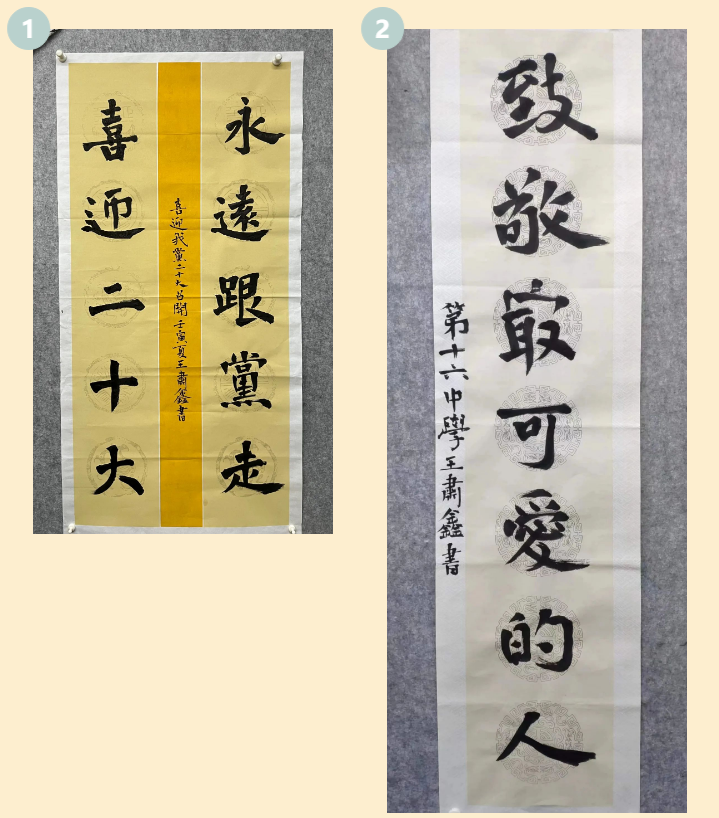 1
永遠跟黨走
喜迎二十大
喜迎我黨二十大召開壬寅夏王肅鑫書
2
致敬最可愛的人
第十六中學王肅鑫書